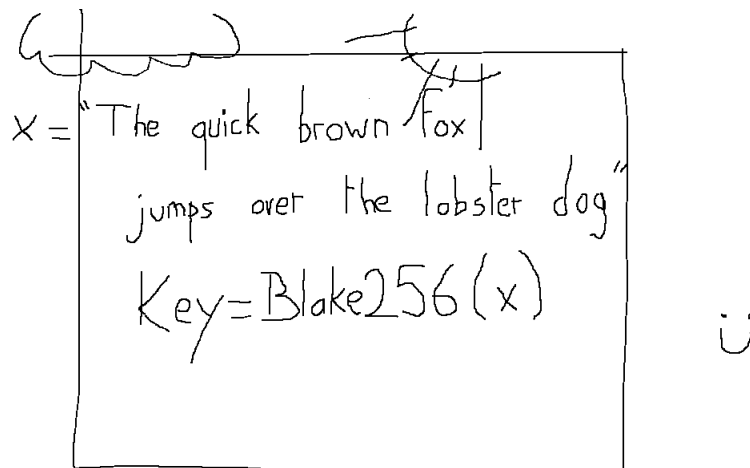 x = "The quick brown fox
jumps over the lobster dog"
Key=Blake256(x)